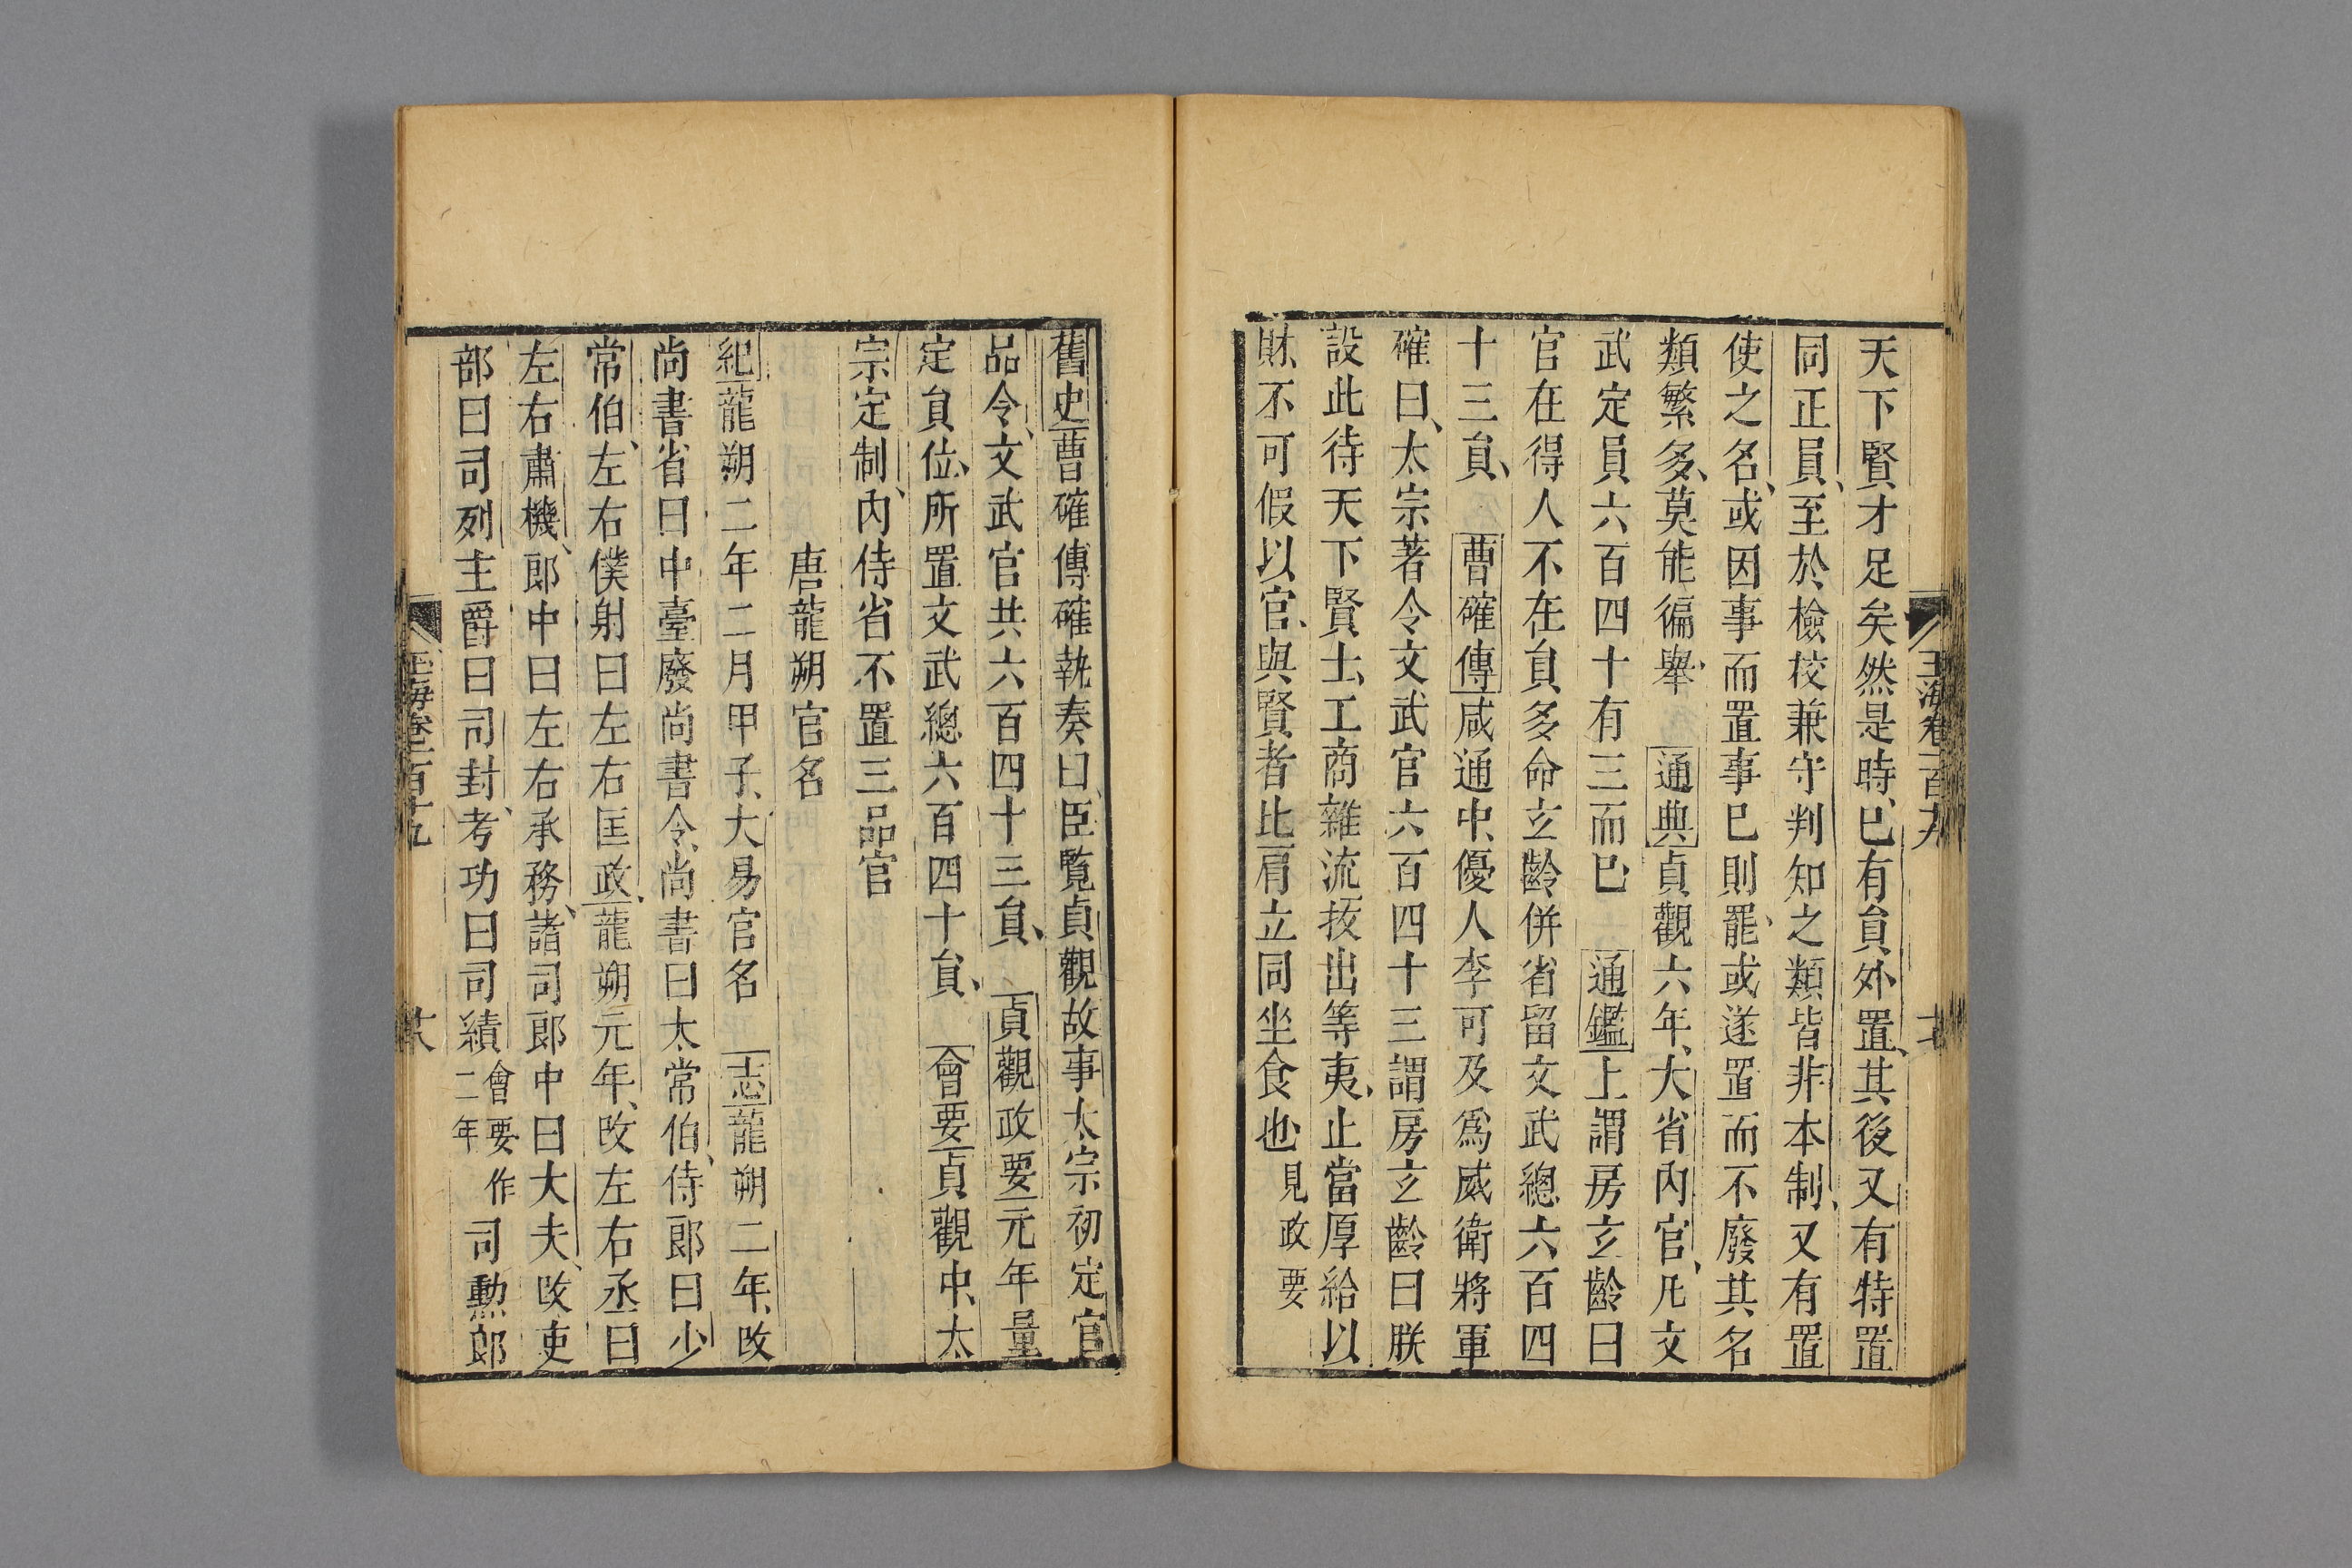 天下賢才足矣然是時、巳有貟外置、其後又有特置
同正員、至於檢校兼守判知之類皆非本制、又有置
使之名、或因事而置事巳則罷、或遂置而不廢其名
類繁多、莫能徧舉、通典貞觀六年、大省內官、凡文
武定員六百四十有三而巳 通鑑上謂房玄齡曰
官在得人不在貟多命玄齡併省留文武總六百四
十三貟、 曹確傳咸通中、優人李可及爲威衛將軍
確曰、太宗著令文武官六百四十三謂房玄齡曰朕
設此待天下賢士、工商雜流抜出等夷、止當厚給以
財、不可假以官、與賢者比肩立同坐食也見政要
舊史曹確傳確執奏曰、臣覧貞觀故事太宗初定官
品令、文武官共六百四十三貟、 貞觀政要元年量
定貟位、所置文武總六百四十貟、 會要貞觀中、太
宗定制、內侍省不置三品官
唐龍朔官名
紀龍朔二年二月甲子、大易官名 志龍朔二年、改
尚書省曰中臺廢尚書令、尚書曰太常伯、侍郎曰少
常伯、左右僕射曰左右匡政、龍朔元年、改左右丞曰
左右肅機、郎中曰左右承務、諸司郎中曰大夫、改吏
部曰司列主爵曰司封、考功曰司績會要二年作司勲郎
玉海卷一百十九